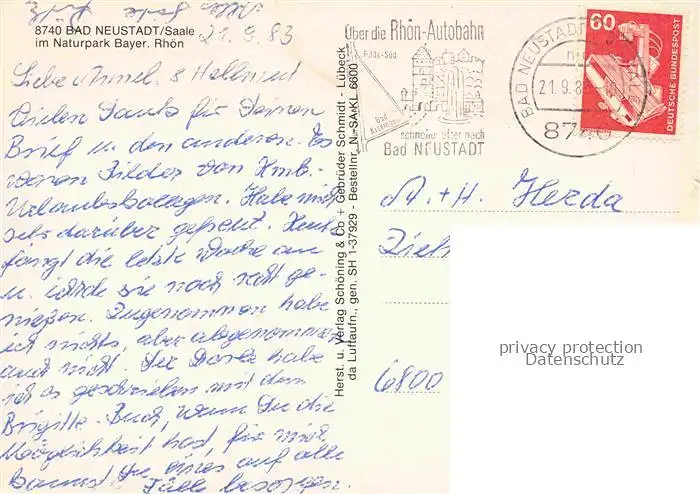 8740 BAD NEUSTADT/Saale
im Naturpark Bayer. Rhön
21.9.83
Liebe Annel. & Hellmut
Vielen Dank für Deinen
Brief u. den anderen. Es
waren Bilder von Hmb.-
Urlaubskollegen. Habe mich
sehr darüber gefreut. Heute
fängt die letzte Woche an
u. werde sie noch recht ge-
nießen. Zugenommen habe
ich nichts, aber abgenommen
auch nicht. Der Dorle habe
ich es geschrieben mit dem
Brigitte-Buch, wenn Du die
Möglichkeit hast, für mich
kannst Du eines auf alle
Fälle besorgen.
Herst. u. Verlag Schöning & Co + Gebrüder Schmidt - Lübeck
da Luftaufn., gen. SH 1-37929 - Bestellnr. N.-SA/KL 6600
Über die Rhön-Autobahn
Fulda-Süd
Bad Kissingen
schneller öfter nach
Bad NEUSTADT
BAD NEUSTADT
21.9.83
8740
60
DEUTSCHE BUNDESPOST
A. + H. Herda
Zieh
6800
privacy protection
Datenschutz